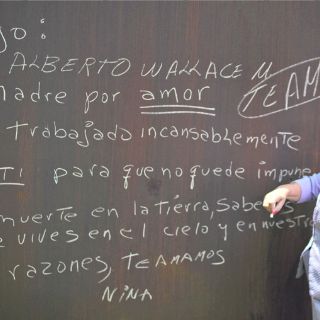 jo:
ALBERTO WALLACE M
madre por amor
TE AM
trabajado incansablemente
TI para que no quede impune
muerte en la tierra, sabe
vives en el cielo y en nuestr
razones, TE AMAMOS
NINA